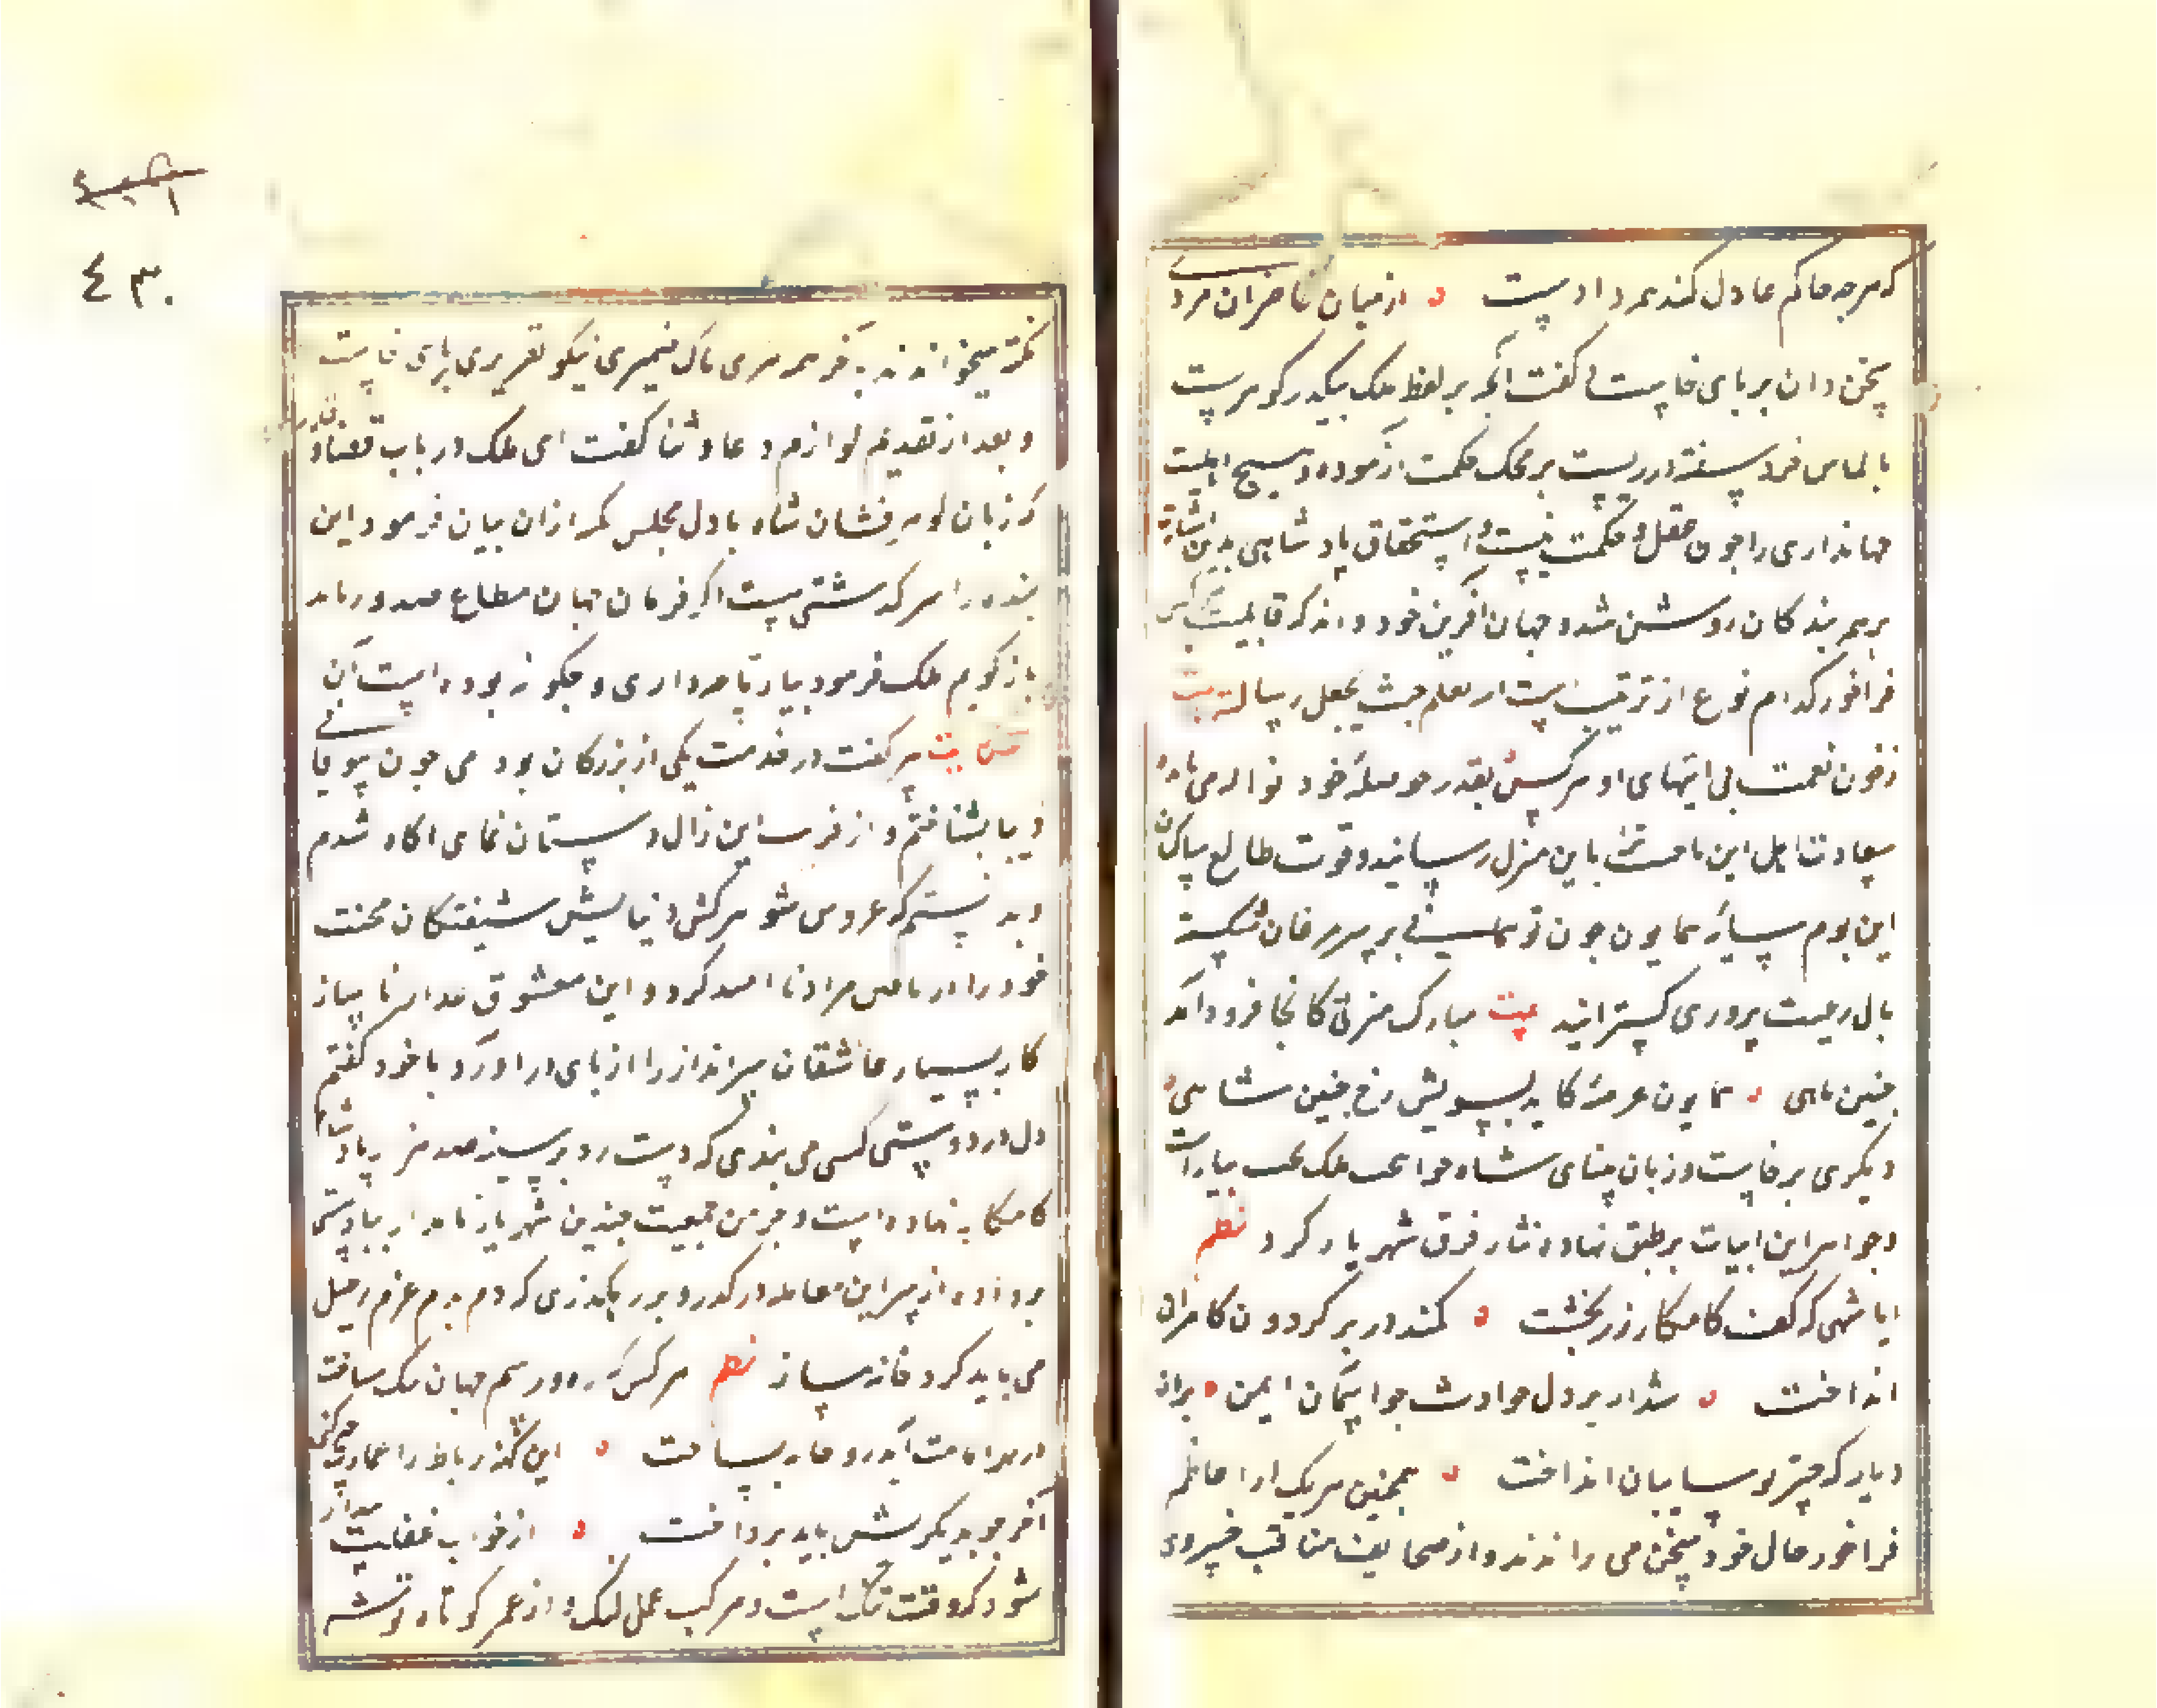 که هرچه حاکم عادل کند همه دادست از میان حاضران مردی
سخن دان بر پای خاست و گفت آنچه بر لفظ ملک میگذرد گوهریست
بالماس خرد سفته و زریست بر محک حکمت آزموده و هیچ اهلیت
جهانداری را چون عقل و حکمت نیست و استحقاق پادشاهی بدین
بر همه بندگان روشن شد و جهان آفرین خود داند که قابلیت هر کس
فراخور کدام نوع از تربیت است الله اعلم حیث یجعل رسالته بیت
ز خوان نعمت بی انتهای او هر کس بقدر حوصله خود نواله می یابد
سعادت اهل این ناحیت ترا باین منزل رسانید و قوت طالع ساکنان
این بوم سایه همایون چون تو همایی بر سر مرغان شکسته
بال رعیت پروری گسترانید بیت مبارک منزلی کانجا فرود آید
چنین ماهی همایون عرصه کاید بسویش رخ چنین شاهی
دیگری برخاست و زبان بثنای شاه جوانبخت ملک بخت بیاراست
و جواهر این ابیات بر طبق نهاده نثار فرق شهریار کرد نظم
ایا شهی که کف کامکار زربخشت کمند در بر گردون کامران
انداخت شد از بر دل حوادث جوایمان ایمن بران
دیار که چتر تو سایبان انداخت همچنین هر یک از اعاظم
فراخور حال خود سخن می راندند و از صحایف مناقب خسروی
٤٣٠
نکته میخواندند به آخر همه مردی پاک ضمیری نیکو تقریری بپای خاست
و بعد از تقدیم لوازم دعا و ثنا گفت ای ملک در باب قضا و
که زبان گوهرفشان شاه با دل مجلس گهر ازان بیان فرمود این
بنده را سرگذشتی هست اگر فرمان جهان مطاع صدور یابد
باز گویم ملک فرمود بیار تا چه داری و چگونه بوده است آن
حکایت پیر گفت در خدمت یکی از بزرگان بودمی چون بیوفایی
دنیا بشناختم و از فریب این زال دستان نمای آگاه شدم
و بدانستم که عروس شوهرکش دنیا بسیش شیفتگان محنت
خود را از یافتن مراد ناامید کرد و این معشوق غدار ناساز
کار بسیار عاشقان سرانداز را از پای درآورد با خود گفتم
دل در دوستی کسی می بندی که دست رد بر سینه صد هزار پادشاه
کامکار نهاده است و خرمن جمعیت چندین شهریار نامدار بباد نیستی
برداده از سر این معامله درگذر و بر رهگذری که دم بدم عزم رحیل
می باید کرد خانه مساز نظم هر کس که ره و رسم جهان نیک شناخت
از بهر اقامت اندرو خانه نساخت این کهنه رباط را عمارت چکنی
آخر چو بدیگرش بباید پرداخت از خواب غفلت بیدار
شو که وقت تنگ است و مرکب عمل لنگ و از عمر کوتاه توشه